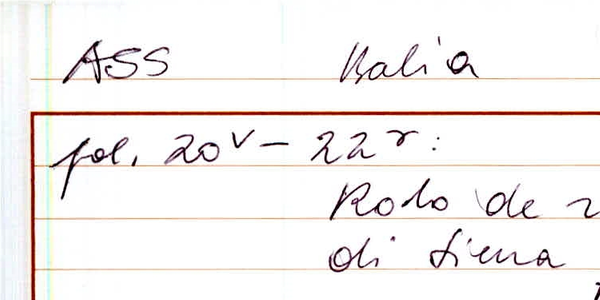 ASS Balia
fol. 20v - 22r:
Rolo de
di Siena